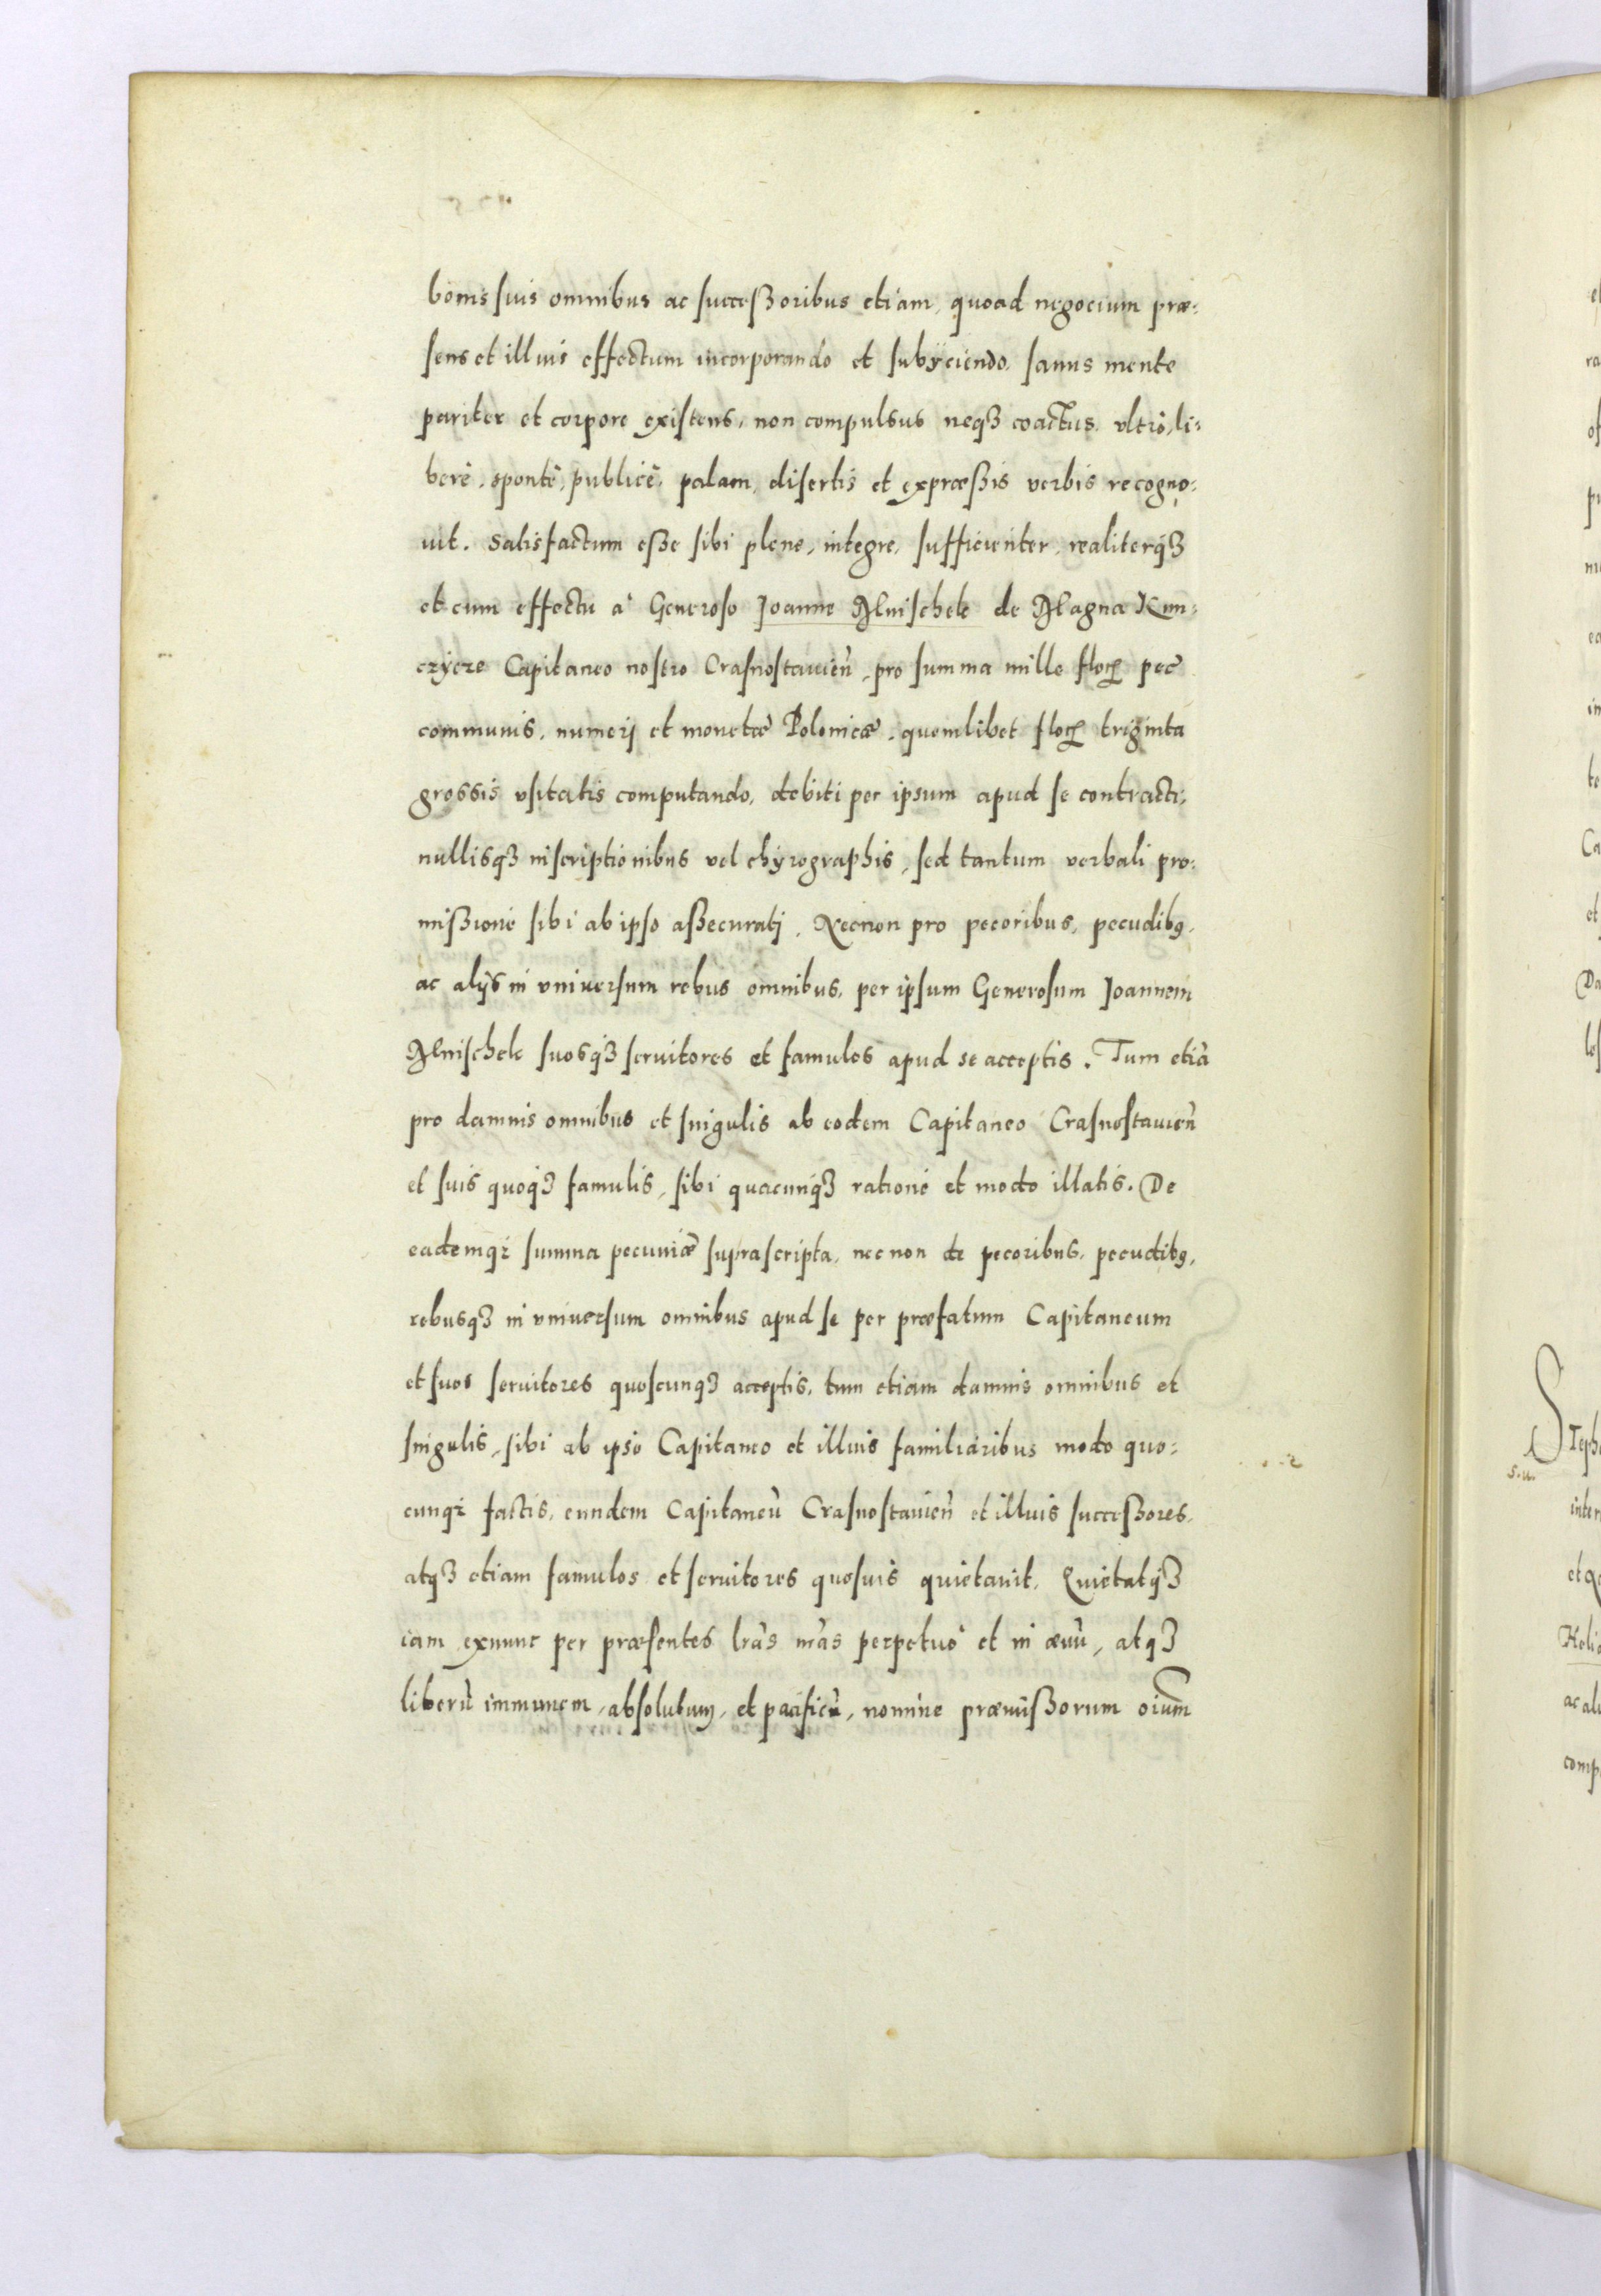 bonis suis omnibus ac successoribus etiam, quoad negocium præ=
sens et illius effectum incorporando et subÿciendo, sanus mente
pariter et corpore existens, non compulsus neqꝫ coactus, vltrò, li=
berè, spontè, publicè, palam, disertis et expræssis verbis recogno=
uit. Satisfactum esse sibi plene, integre, sufficienter, realiterqꝫ
et cum effectu à Generoso Joanne Mnischek de Magna Kun=
czÿcze Capitaneo nostro Crasnostauieñ, pro summa mille floꝝ pec̃
communis, numerj et monetæ Polonicæ, quemlibet floꝝ triginta
grossis vsitatis computando, debiti per ipsum apud se contracti,
nullisqꝫ inscriptionibus vel chÿrographis, sed tantum verbali pro=
missione sibi ab ipso assecuratj. Necnon pro pecoribus, pecudibꝰ,
ac alÿs in vniuersum rebus omnibus, per ipsum Generosum Joannem
Mnischek suosqꝫ seruitores et famulos apud se acceptis. Tum etiã
pro damnis omnibus et singulis ab eodem Capitaneo Crasnostauieñ
et suis quoqꝫ famulis, sibi quacunqꝫ ratione et modo illatis. De
eademqꝫ summa pecuniæ suprascripta, nec non de pecoribus, pecudibꝰ,
rebusqꝫ in vniuersum omnibus apud se per præfatum Capitaneum
et suos seruitores quoscunqꝫ acceptis, tum etiam damnis omnibus et
singulis, sibi ab ipso Capitaneo et illius familiaribus modo quo=
cunqꝫ factis, eundem Capitaneũ Crasnostauieñ et illius successores,
atqꝫ etiam famulos et seruitores quosuis quietauit, Quietatqꝫ
iam exnunc per præsentes lr̃as nr̃as perpetuò et in æuũ, atqꝫ
liberũ immunem, absolutum, et pacificũ, nomine præmissorum oium̃